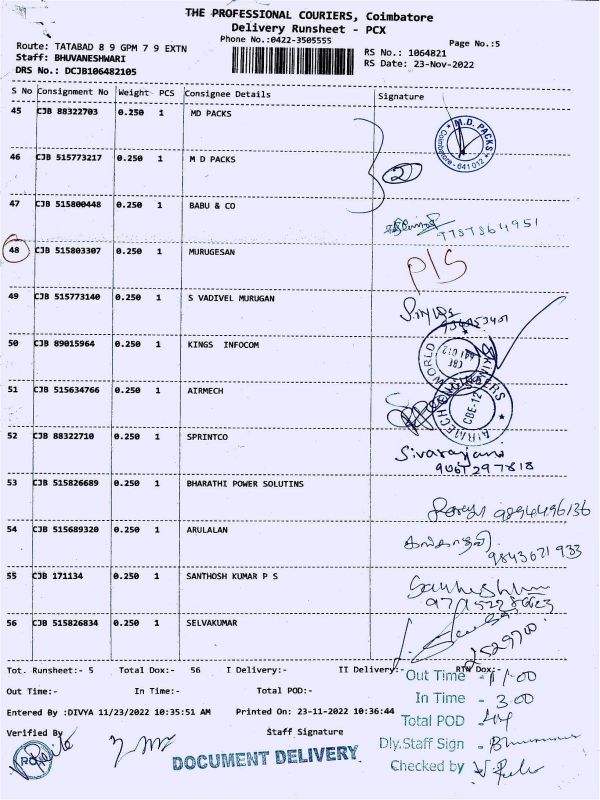 THE PROFESSIONAL COURIERS, Coimbatore
Delivery Runsheet - PCX
Phone No.:0422-3505555
Page No.:5
Route: TATABAD 8 9 GPM 7 9 EXTN
Staff: BHUVANESHWARI
DRS No.: DCJB106482105
RS No.: 1064821
RS Date: 23-Nov-2022
S No Consignment No Weight PCS Consignee Details Signature
45 CJB 88322703 0.250 1 MD PACKS
M.D. PACKS
Coimbatore - 641 012
46 CJB 515773217 0.250 1 M D PACKS
2
47 CJB 515800448 0.250 1 BABU & CO
9787864951
48 CJB 515803307 0.250 1 MURUGESAN
P/S
49 CJB 515773140 0.250 1 S VADIVEL MURUGAN
50 CJB 89015964 0.250 1 KINGS INFOCOM
WORLD
CBE
641 012
51 CJB 515634766 0.250 1 AIRMECH
AIRMECH
CBE-12
52 CJB 88322710 0.250 1 SPRINTCO
Sivaranjani
9061297818
53 CJB 515826689 0.250 1 BHARATHI POWER SOLUTINS
9894496136
54 CJB 515689320 0.250 1 ARULALAN
9843671933
55 CJB 171134 0.250 1 SANTHOSH KUMAR P S
56 CJB 515826834 0.250 1 SELVAKUMAR
2529700
Tot. Runsheet:- 5 Total Dox:- 56 I Delivery:- II Delivery:- RTN Dox:-
Out Time:- In Time:- Total POD:-
Out Time - 11-00
In Time - 3.00
Total POD - 44
Entered By :DIVYA 11/23/2022 10:35:51 AM Printed On: 23-11-2022 10:36:44
Verified By Staff Signature
Dly.Staff Sign -
Checked by
DOCUMENT DELIVERY